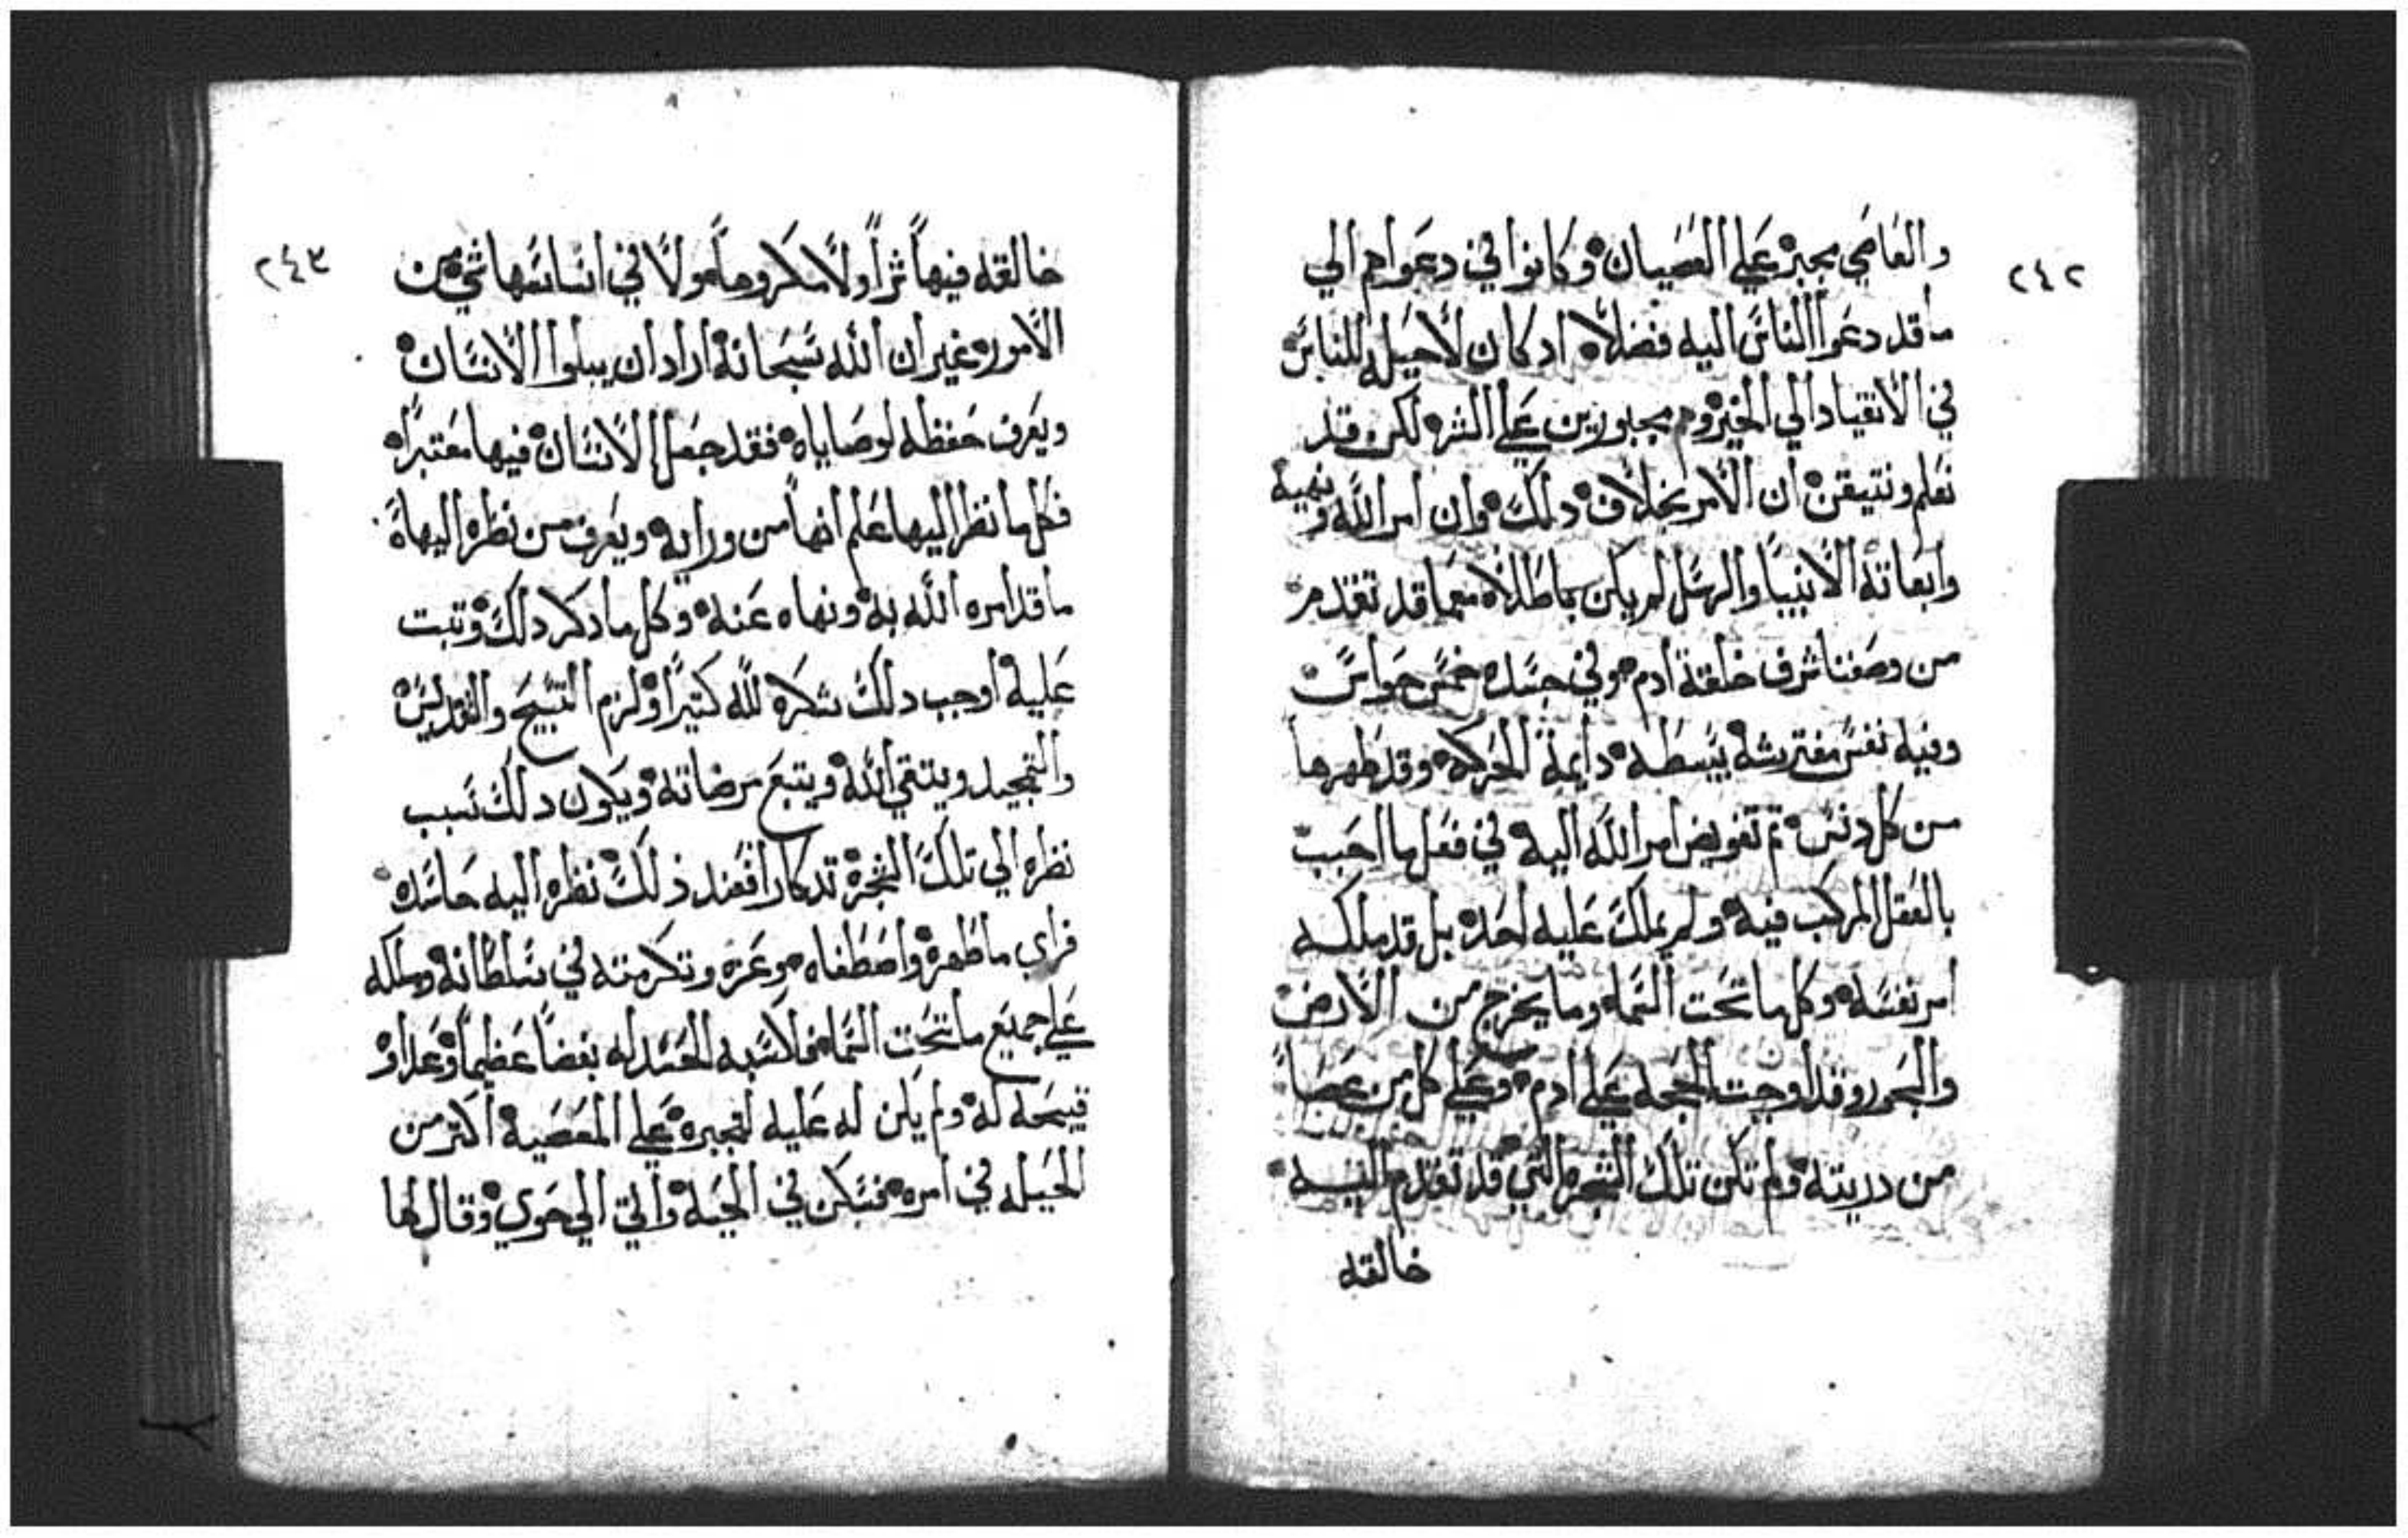 ٢٤٢
والعاصي مجبر علي العصيان وكانوا في دعواهم الي
ما قد دعوا الناس اليه فضلاً اد كان لا حيله للناس
في الانقياد الي الخير وهم مجبورين علي الشر لكن وقد
نعلم ونتيقن ان الامر بخلاف دلك وان امر الله ونهيه
وابعاته الانبيا والرسل لم يكن باطلاً معما قد تقدم
من وصفنا شرف خلقة ادم وفي جسده خمس حواس
وفيه نفس مفترشه بسطه دايمة الحركه وقد طهرها
من كل دنس ثم تفويض امر الله اليه في فعل ما احبب
بالعقل المركب فيه ولم يملك عليه احد بل قد ملكه
امر نفسه وكلما تحت السما وما يخرج من الارض
والبحور وقد اوجبت الحجه علي ادم وعلي كل من عصا
من دريته ولم تكن تلك الشجره التي قد تقدم اليه
خالقه
٢٤٣
خالقه فيها ثراً ولا مكروهاً ولا في اساسها شي من
الامور غير ان الله سبحانه اراد ان يبلوا الانسان
ويعرف حفظه لوصاياه فقد جعل الانسان فيها معتبراً
فكل ما نظر اليها علم انها من ورايه ويعرف من نظره اليها
ما قد امره الله به ونهاه عنه وكل ما دكر دلك وتبت
عليه اوجب دلك شكره لله كتيراً ولزم التسبيح والتقديس
والتمجيد ويتقي الله ويتبع مرضاته ويكون دلك سبب
نظره الي تلك الشجرة تدكاراً فعند ذلك نظر اليه حاسده
فراي ما طهره واصطفاه وعزه وتكرمته في سلطانه وملكه
علي جميع ما تحت السما الحسد له بغضاً عظيماً وعداوة
قبيحه له ولم يكن له عليه لمجبره علي المعصية اكتر من
الحيله في امره فسكن في الحيه واتي الي حوي وقال لها